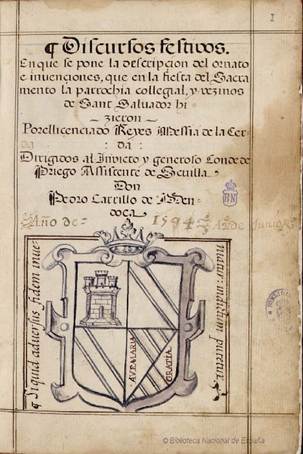 1
¶ Discursos festivos.
En que se pone la descripcion del ornato
e invenciones, que en la fiesta del Sacra
mento la parrochia collegial, y vezinos
de Sant Salvador hi
zieron
Por el licenciado Reyes Messia de la Cer
da:
Dirigidos al Invicto y generoso Conde de
Priego Assistente de Sevilla
Don
Pedro Carrillo de Men
doça
Año de 1594
¶ Siquid adversus fidem inve
niatur: indictum putetur
AVE MARIA
GRATIA
BN
© Biblioteca Nacional de España